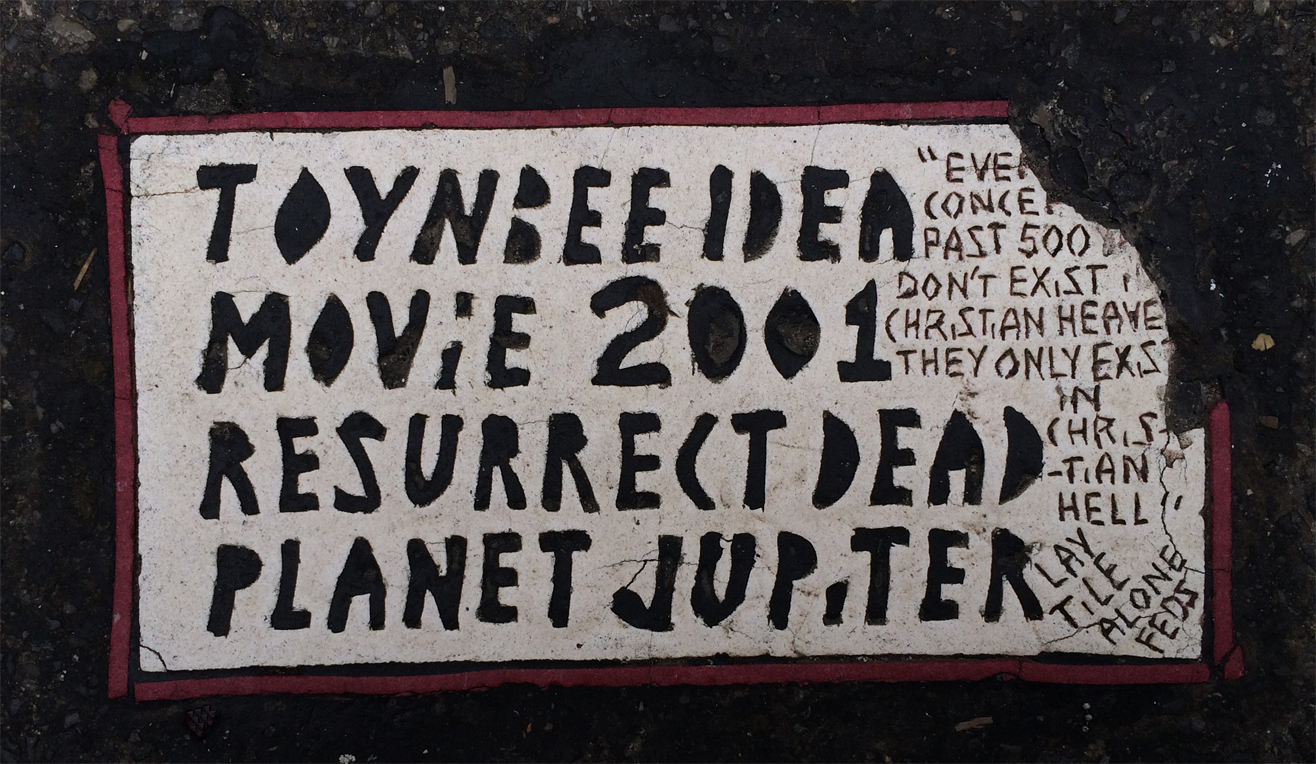 TOYNBEE IDEA
MOViE 2001
RESURRECT DEAD
PLANET JUPiTER
"EVE
CONCE
PAST 500
DON'T EXiST
CHRiSTiAN HEAVE
THEY ONLY EXiST
iN
CHRiS-
-TiAN
HELL"
LAY
TiLE
ALONE
FEDS